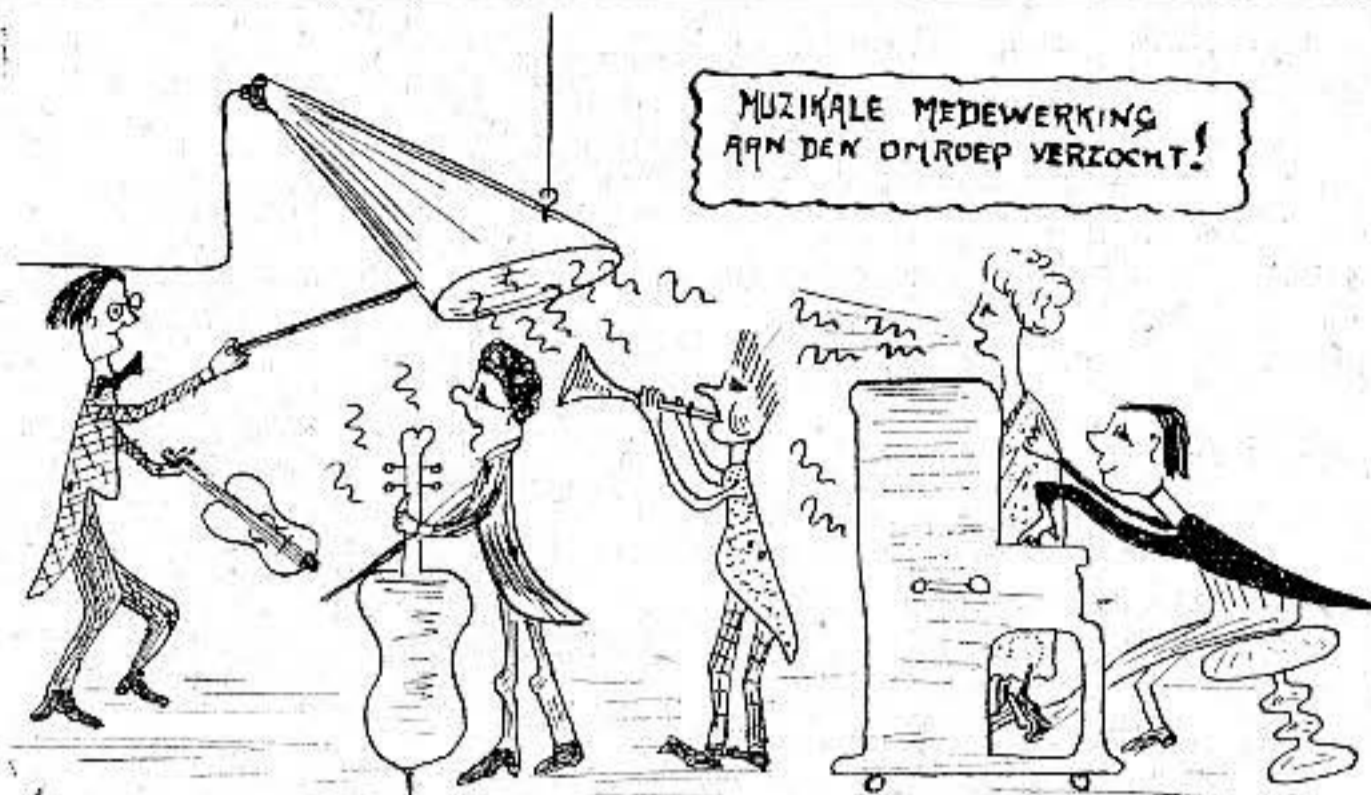 MUZIKALE MEDEWERKING
AAN DEN OMROEP VERZOCHT!